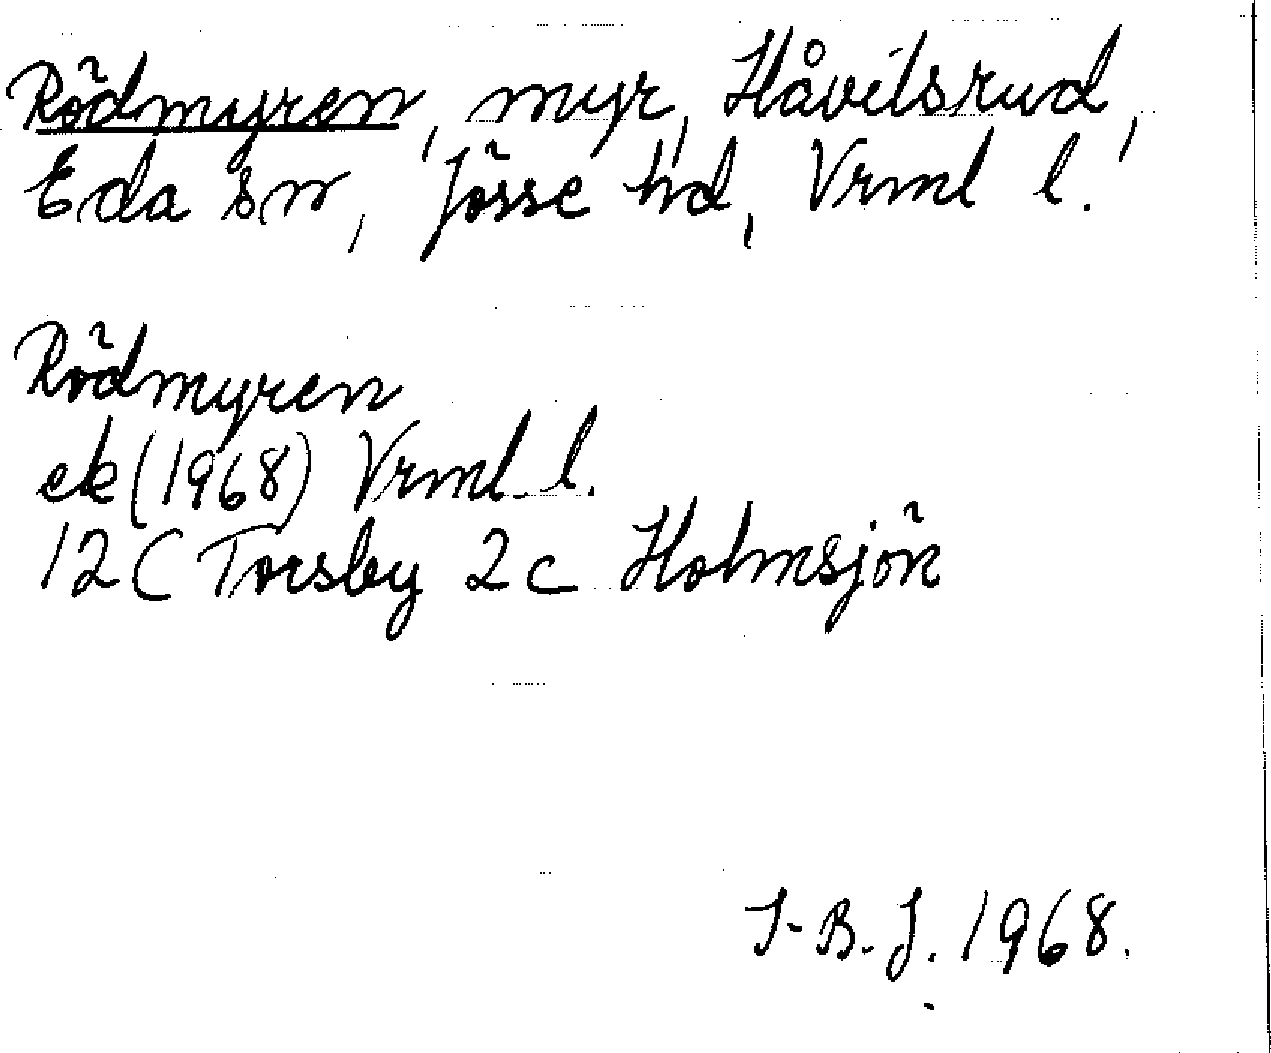 Rödmyren, myr, Håvilsrud,
Eda sn, Jösse hd, Vrml l.
Rödmyren
ek (1968) Vrml l.
12 C Torsby 2c Holmsjön
I-B. J. 1968.